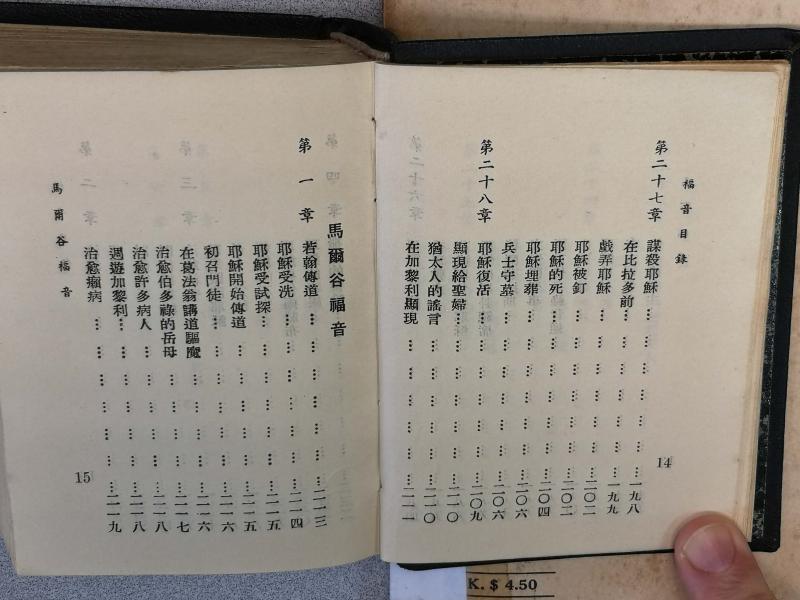 福音目錄
第二十七章
謀殺耶穌…………………一九八
在比拉多前…………………一九九
戲弄耶穌…………………二〇二
耶穌被釘…………………二〇二
耶穌的死…………………二〇四
耶穌埋葬…………………二〇六
兵士守墓…………………二〇六
第二十八章
耶穌復活…………………二〇九
顯現給聖婦…………………二一〇
猶太人的謠言…………………二一〇
在加黎利顯現…………………二一一
14
馬爾谷福音
第一章
若翰傳道…………………二一三
耶穌受洗…………………二一四
耶穌受試探…………………二一五
耶穌開始傳道…………………二一五
初召門徒…………………二一六
在葛法翁講道驅魔…………………二一六
治愈伯多祿的岳母…………………二一七
治愈許多病人…………………二一八
週遊加黎利…………………二一八
治愈癩病…………………二一九
馬爾谷福音
15
K. $ 4.50